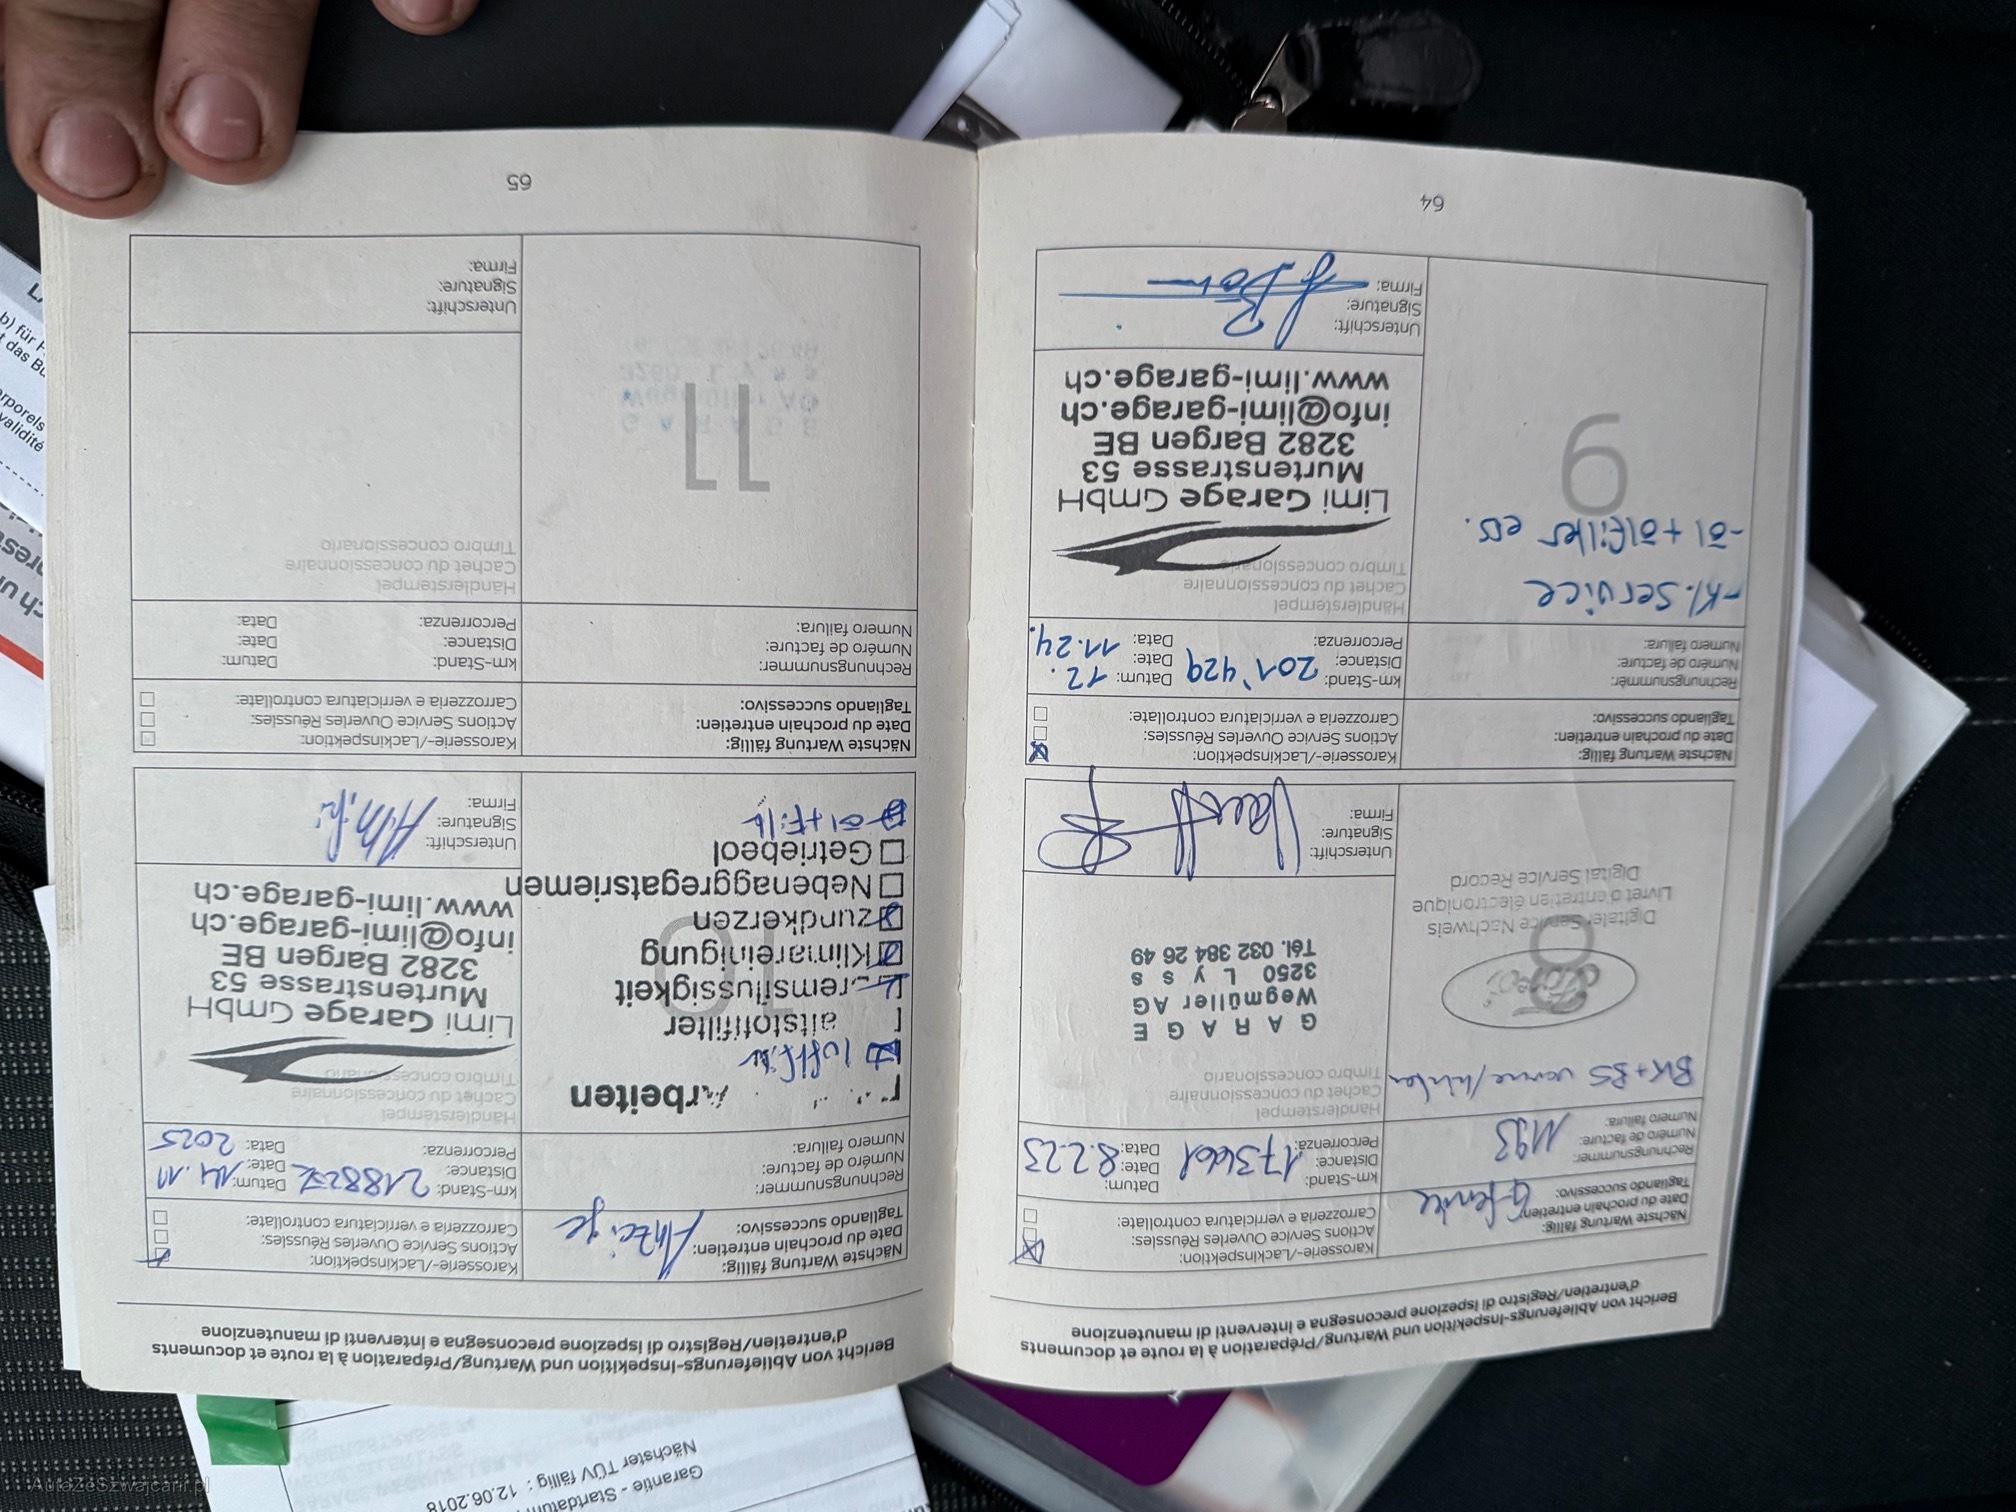 Bericht von Ablieferungs-Inspekition und Wartung/Préparation à la route et documents
d'entretien/Registro di ispezione preconsegna e interventi di manutenzione
Nächste Wartung fällig:
Date du prochain entretien:
Tagliando successivo:
Karosserie-/Lackinspektion:
Actions Service Ouverles Réussles:
Carrozzeria e verriciatura controllate:
Rechnungsnummer:
Numéro de facture:
Numero failura:
1193
km-Stand:
Distance:
Percorrenza:
Datum:
Date:
Data:
8.2.23
BK+BS vorne/hinten
Digitaler Service Nachweis
Livret d'entretien électronique
Digital Service Record
8
Händlerstempel
Cachet du concessionnaire
Timbro concessionario
GARAGE
Wegmüller AG
3250 Lyss
Tél. 032 384 26 49
Unterschift:
Signature:
Firma:
Nächste Wartung fällig:
Date du prochain entretien:
Tagliando successivo:
Karosserie-/Lackinspektion:
Actions Service Ouverles Réussles:
Carrozzeria e verriciatura controllate:
Rechnungsnummer:
Numéro de facture:
Numero failura:
km-Stand:
Distance:
Percorrenza:
201'429
Datum:
Date:
Data:
12.
11.24.
-Kl. Service
-öl + ölfilter ers.
9
Händlerstempel
Cachet du concessionnaire
Timbro concessionario
Limi Garage GmbH
Murtenstrasse 53
3282 Bargen BE
info@limi-garage.ch
www.limi-garage.ch
Unterschift:
Signature:
Firma:
64
Bericht von Ablieferungs-Inspekition und Wartung/Préparation à la route et documents
d'entretien/Registro di ispezione preconsegna e interventi di manutenzione
Nächste Wartung fällig:
Date du prochain entretien:
Tagliando successivo:
Anzeige
Karosserie-/Lackinspektion:
Actions Service Ouverles Réussles:
Carrozzeria e verriciatura controllate:
Rechnungsnummer:
Numéro de facture:
Numero failura:
km-Stand:
Distance:
Percorrenza:
Datum:
Date:
Data:
14.11
2025
Arbeiten
luftfilter
Klimareinigung
zundkerzen
Nebenaggregatsriemen
Getriebeol
öl+Filt
10
Händlerstempel
Cachet du concessionnaire
Timbro concessionario
Limi Garage GmbH
Murtenstrasse 53
3282 Bargen BE
info@limi-garage.ch
www.limi-garage.ch
Unterschift:
Signature:
Firma:
Nächste Wartung fällig:
Date du prochain entretien:
Tagliando successivo:
Karosserie-/Lackinspektion:
Actions Service Ouverles Réussles:
Carrozzeria e verriciatura controllate:
Rechnungsnummer:
Numéro de facture:
Numero failura:
km-Stand:
Distance:
Percorrenza:
Datum:
Date:
Data:
11
Händlerstempel
Cachet du concessionnaire
Timbro concessionario
Unterschift:
Signature:
Firma:
65
Garantie - Startdatum
Nächster TÜV fällig : 12.06.2018
b) für
das
validité
AutaZeSzwajcarii.pl